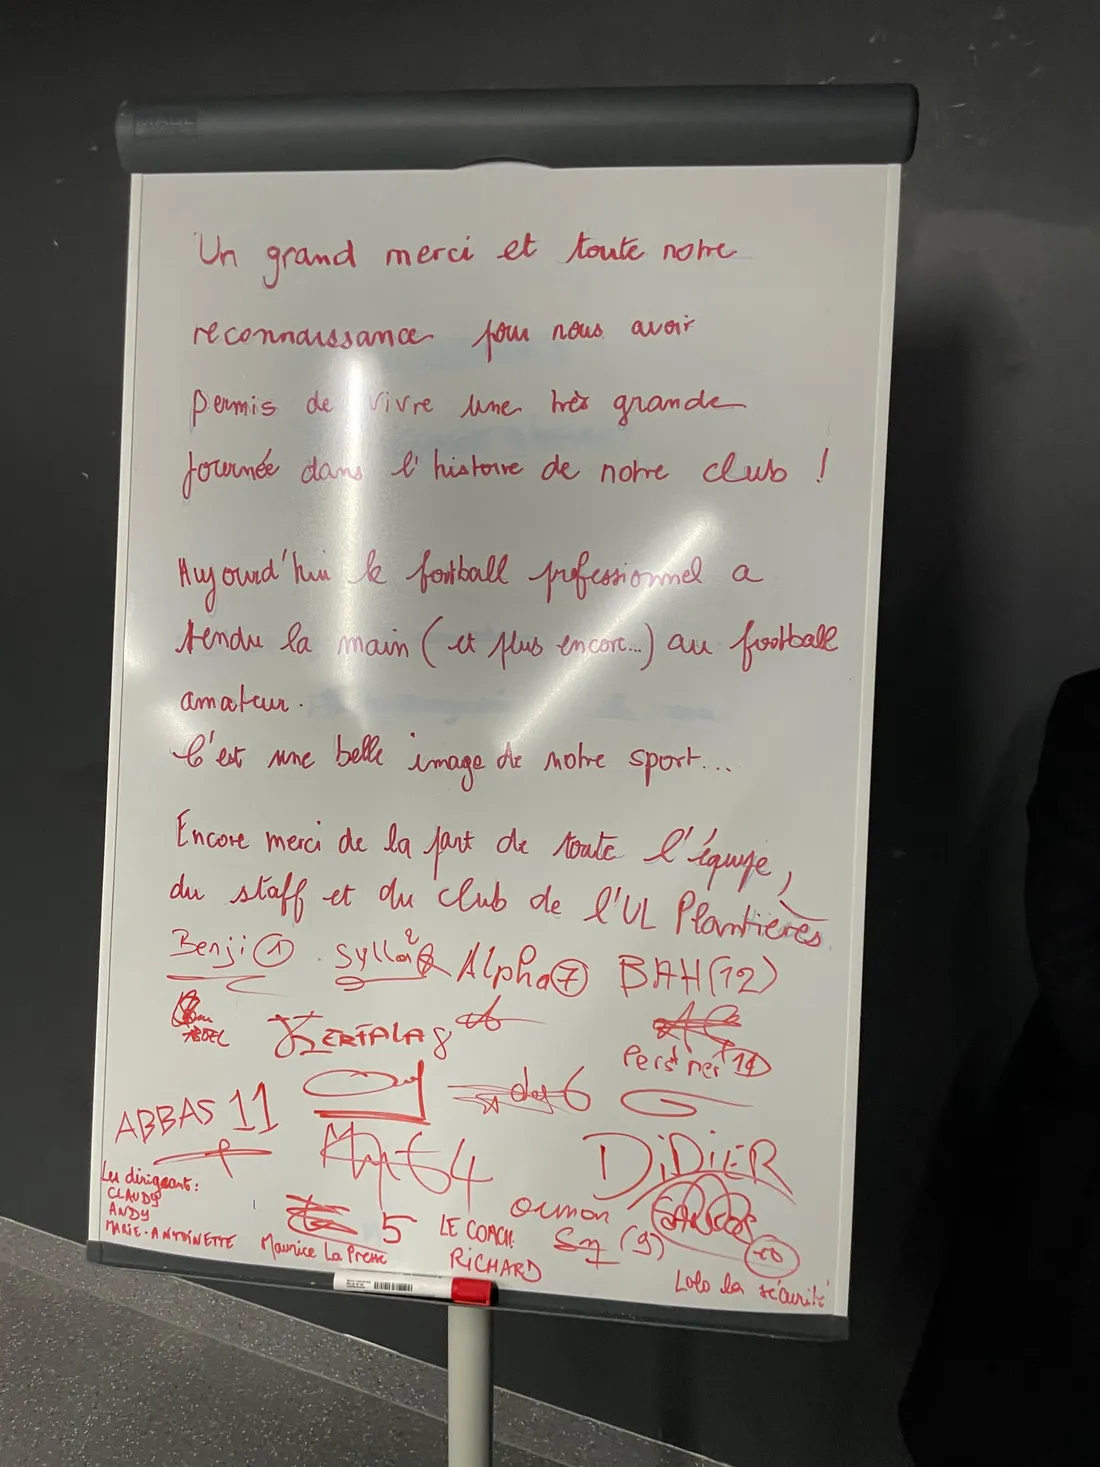 MAUL
Un grand merci et toute notre
reconnaissance pour nous avoir
permis de vivre une très grande
journée dans l'histoire de notre club !
Aujourd'hui le football professionnel a
tendu la main (et plus encore...) au football
amateur.
C'est une belle image de notre sport...
Encore merci de la part de toute l'équipe,
du staff et du club de l'UL Plantières
Benji 1 Sylla 2 Alpha 7 BAH (12)
ABDEL KERTALA 8
14
6
ABBAS 11
4 DiDiER
Les dirigeants :
CLAUDY
ANDY
MARIE-ANTOINETTE
5
Maurice La Presse
LE COACH
RiCHARD
(9)
10
Lolo la sécurité